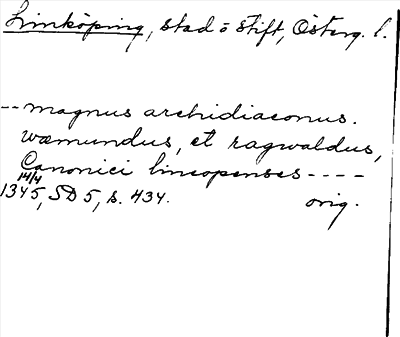 Linköping, stad o stift, Österg. l.
-- magnus archidiaconus.
wæmundus, et ragwaldus,
Canonici lincopenses ----
14/4
1345, SD 5, s. 434. orig.